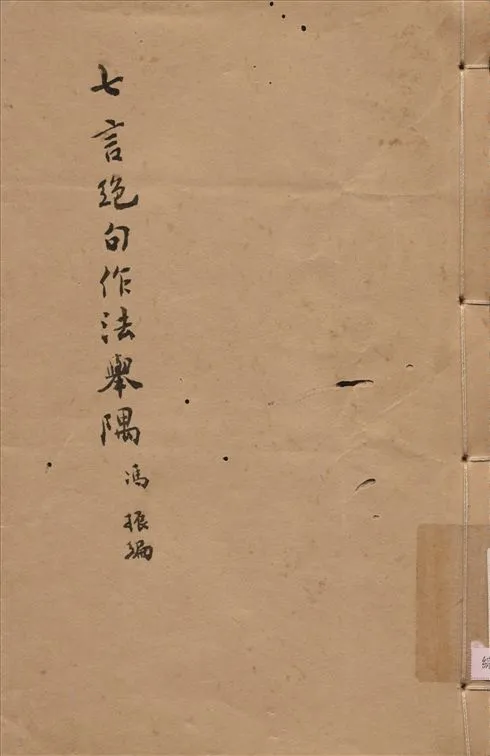 七言絶句作法舉隅
馮振編